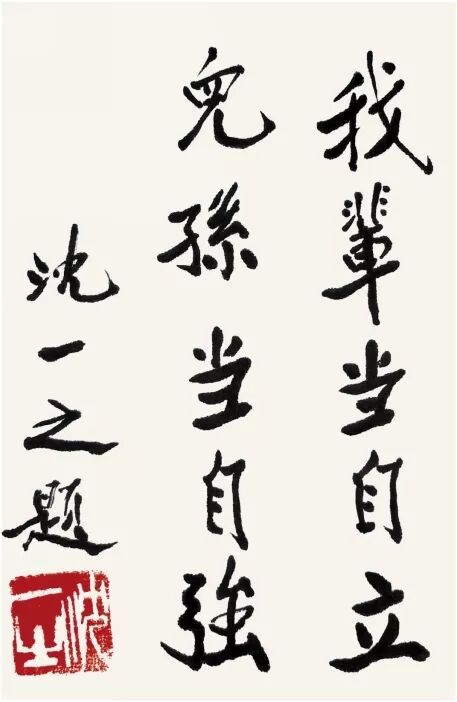 我輩当自立
兒孫当自強
沈一之题
沈一之